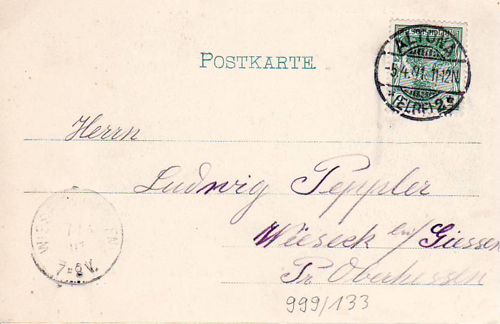 POSTKARTE
ALTONA
-5/4.01.11-12N
*(ELBE)2*
Herrn
Ludwig Peppler
Wieseck bei Giessen
Pr Oberhessen
7-8V.
999/133